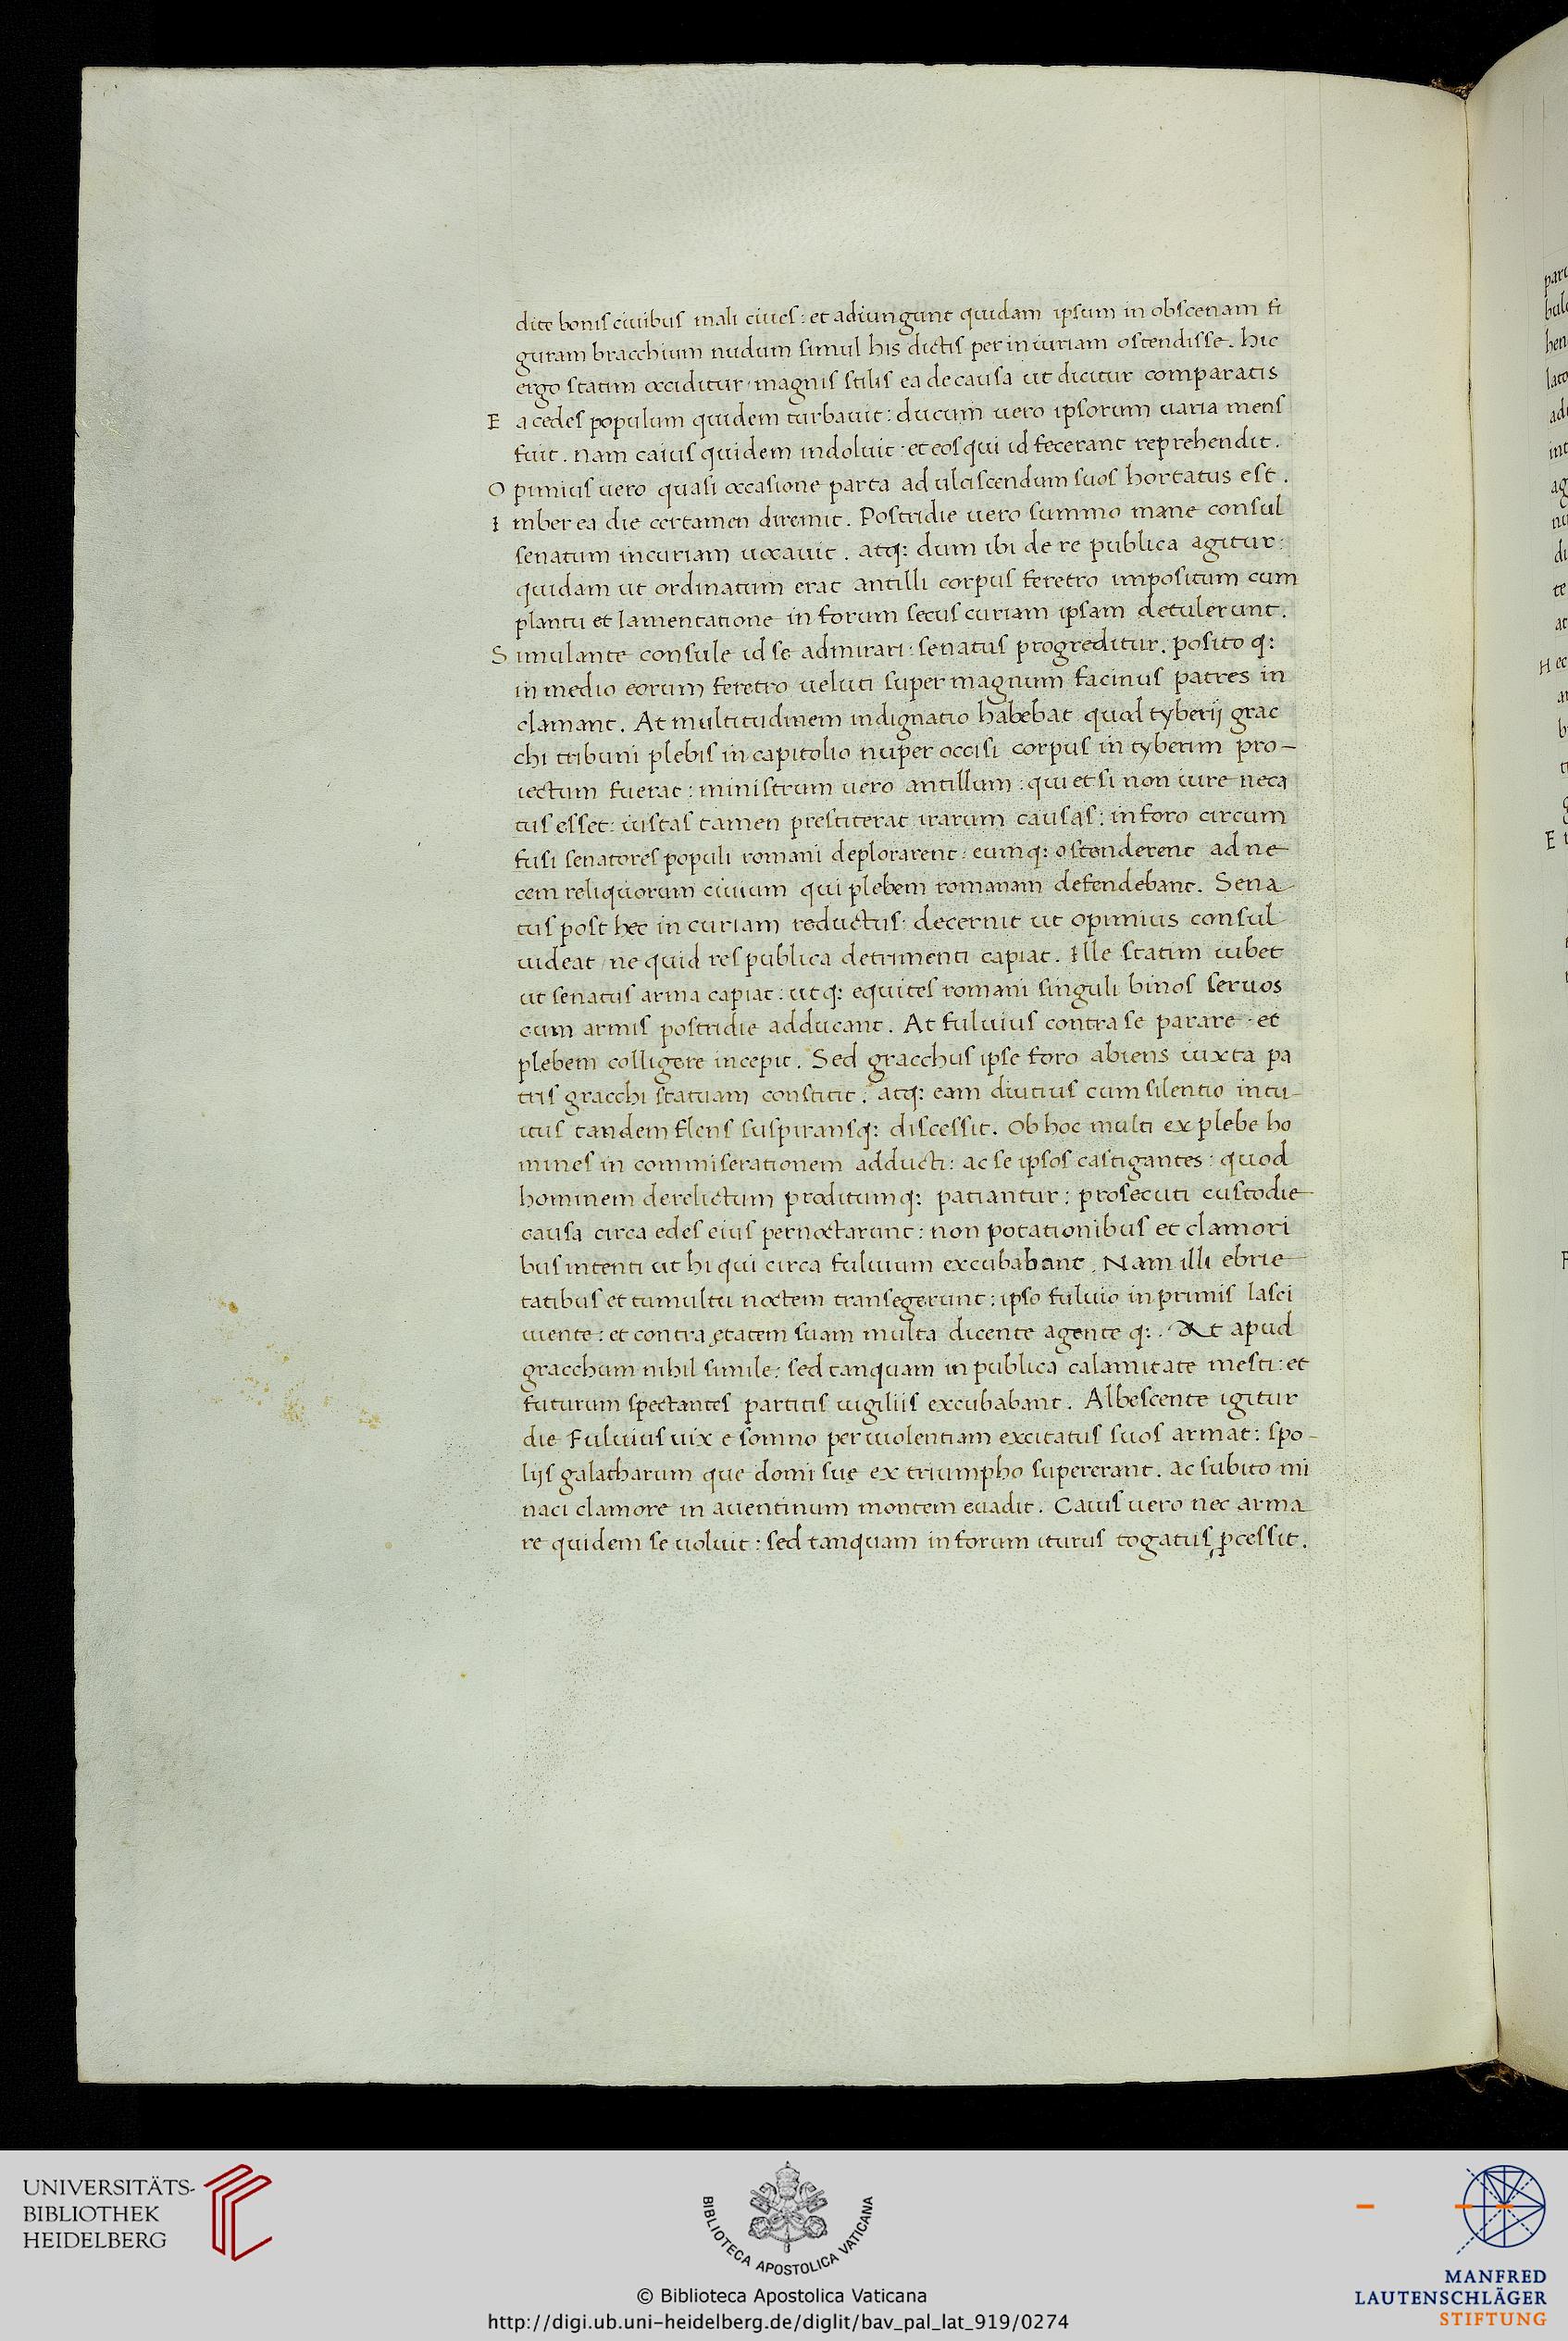 dite bonis ciuibus mali ciues: et adiungunt quidam ipsum in obscenam fi
guram bracchium nudum simul his dictis per iniuriam ostendisse. hic
ergo statim occiditur magnis stilis ea de causa ut dicitur comparatis
E a cedes populum quidem turbauit: ducum uero ipsorum uaria mens
fuit. nam caius quidem indoluit: et eos qui id fecerant reprehendit.
O pimius uero quasi occasione parta ad ulciscendum suos hortatus est.
I mber ea die certamen diremit. Postridie uero summo mane consul
senatum in curiam uocauit. atq: dum ibi de re publica agitur:
quidam ut ordinatum erat antilli corpus feretro impositum cum
planctu et lamentatione in forum secus curiam ipsam detulerunt.
S imulante consule id se admirari: senatus progreditur. posito q:
in medio eorum feretro ueluti super magnum facinus patres in
clamant. At multitudinem indignatio habebat quod tyberij grac
chi tribuni plebis in capitolio nuper occisi corpus in tyberim pro-
iectum fuerat: ministrum uero antillum: qui et si non iure neca
tus esset: iustas tamen prestiterat irarum causas: in foro circum
fusi senatores populi romani deplorarent: eumq: ostenderent ad ne
cem reliquorum ciuium qui plebem romanam defendebant. Sena
tus post hec in curiam reductus: decernit ut opimius consul
uideat ne quid res publica detrimenti capiat. Ille statim iubet
ut senatus arma capiat: ut q: equites romani singuli binos seruos
cum armis postridie adducant. At fuluius contra se parare et
plebem colligere incepit. Sed gracchus ipse foro abiens iuxta pa
tris gracchi statuam constitit. atq: eam diutius cum silentio intu-
itus tandem flens suspiransq: discessit. Ob hoc multi ex plebe ho
mines in commiserationem adducti: ac se ipsos castigantes: quod
hominem derelictum proditumq: patiantur: prosecuti custodie
causa circa edes eius pernoctarunt: non potationibus et clamori
bus intenti ut hi qui circa fuluium excubabant. Nam illi ebrie
tatibus et tumultu noctem transegerunt: ipso fuluio in primis lasci
uiente: et contra ętatem suam multa dicente agente q:. At apud
gracchum nihil simile: sed tanquam in publica calamitate mesti: et
futurum spectantes partitis uigiliis excubabant. Albescente igitur
die Fuluius uix e somno per uiolentiam excitatus suos armat: spo-
lijs galatharum que domi suę ex triumpho supererant. ac subito mi
naci clamore in auentinum montem euadit. Caius uero nec arma
re quidem se uoluit: sed tanquam in forum iturus togatus ꝓcessit.
E
UNIVERSITÄTS-
BIBLIOTHEK
HEIDELBERG
BIBLIOTECA APOSTOLICA VATICANA
© Biblioteca Apostolica Vaticana
http://digi.ub.uni-heidelberg.de/diglit/bav_pal_lat_919/0274
MANFRED
LAUTENSCHLÄGER
STIFTUNG